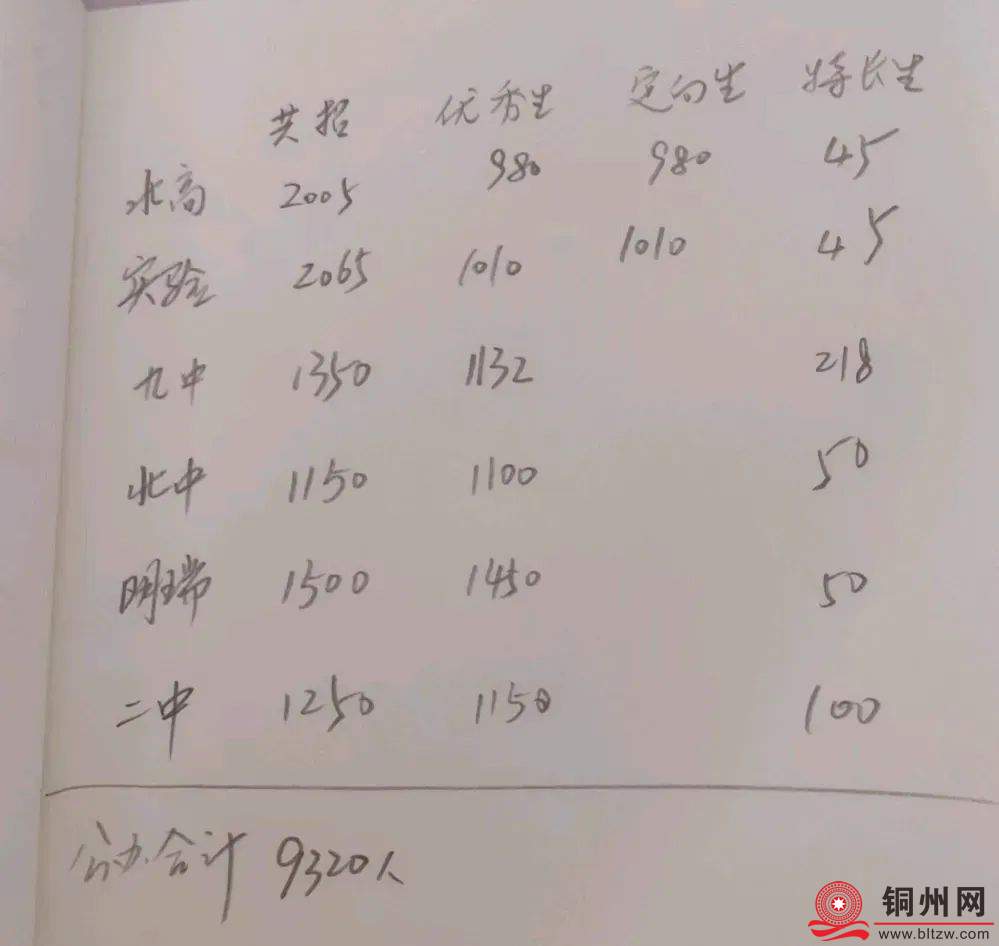 共招 优秀生 定向生 特长生
北高 2005 980 980 45
实验 2065 1010 1010 45
九中 1350 1132 218
北中 1150 1100 50
明瑞 1500 1450 50
二中 1250 1150 100
公办合计 9320人
铜州网
www.bltzw.com